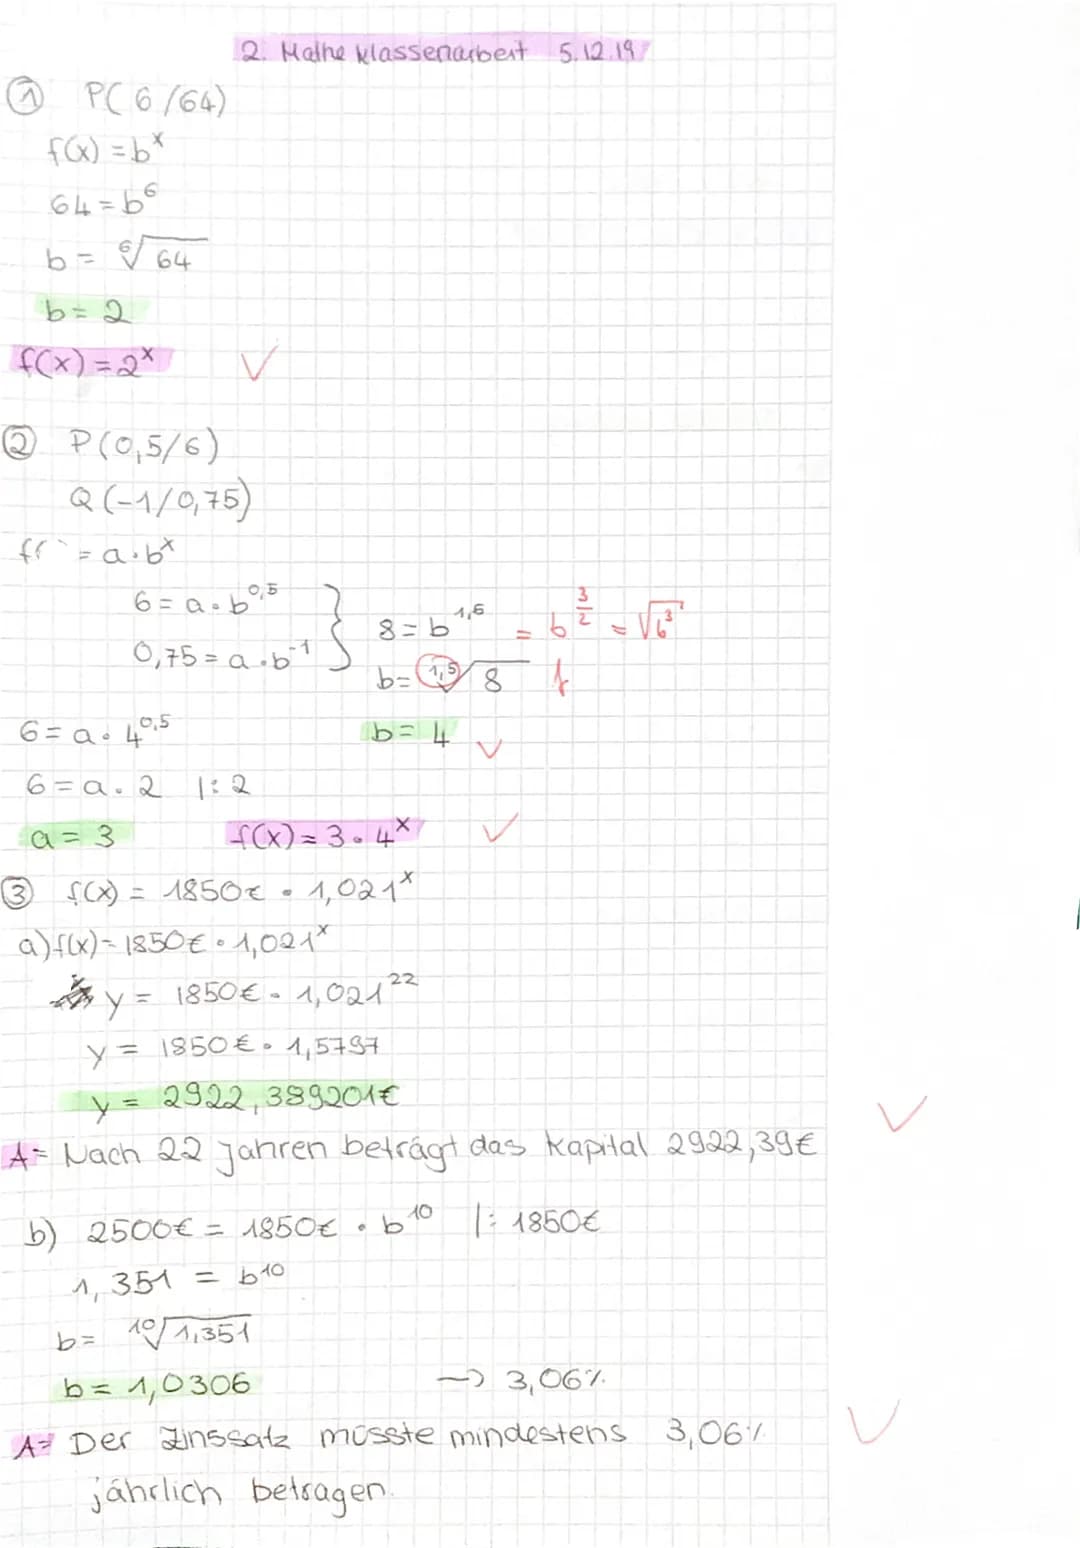 2. Mathe Klassenarbeit 5.12.19
① P(6/64)
f(x) = b^x
64 = b^6
b = ⁶√64
b = 2
f(x) = 2^x ✓
② P(0,5/6)
Q(-1/0,75)
f( = a·b^x
6 = a·b^0,5
0,75 = a·b^-1
8 = b^1,5 = b^(3/2) = √b³
b = ^1,5√8 f
b = 4 ✓
6 = a·4^0,5
6 = a·2 |:2
a = 3 f(x) = 3·4^x ✓
③ f(x) = 1850€ · 1,021^x
a) f(x) = 1850€ · 1,021^x
y = 1850€ · 1,021^22
y = 1850€ · 1,5797
y = 2922,389201€
A= Nach 22 Jahren beträgt das Kapital 2922,39€ ✓
b) 2500€ = 1850€ · b^10 |: 1850€
1,351 = b^10
b = ^10√1,351
b = 1,0306 → 3,06%
A= Der Zinssatz müsste mindestens 3,06% ✓
jährlich betragen.